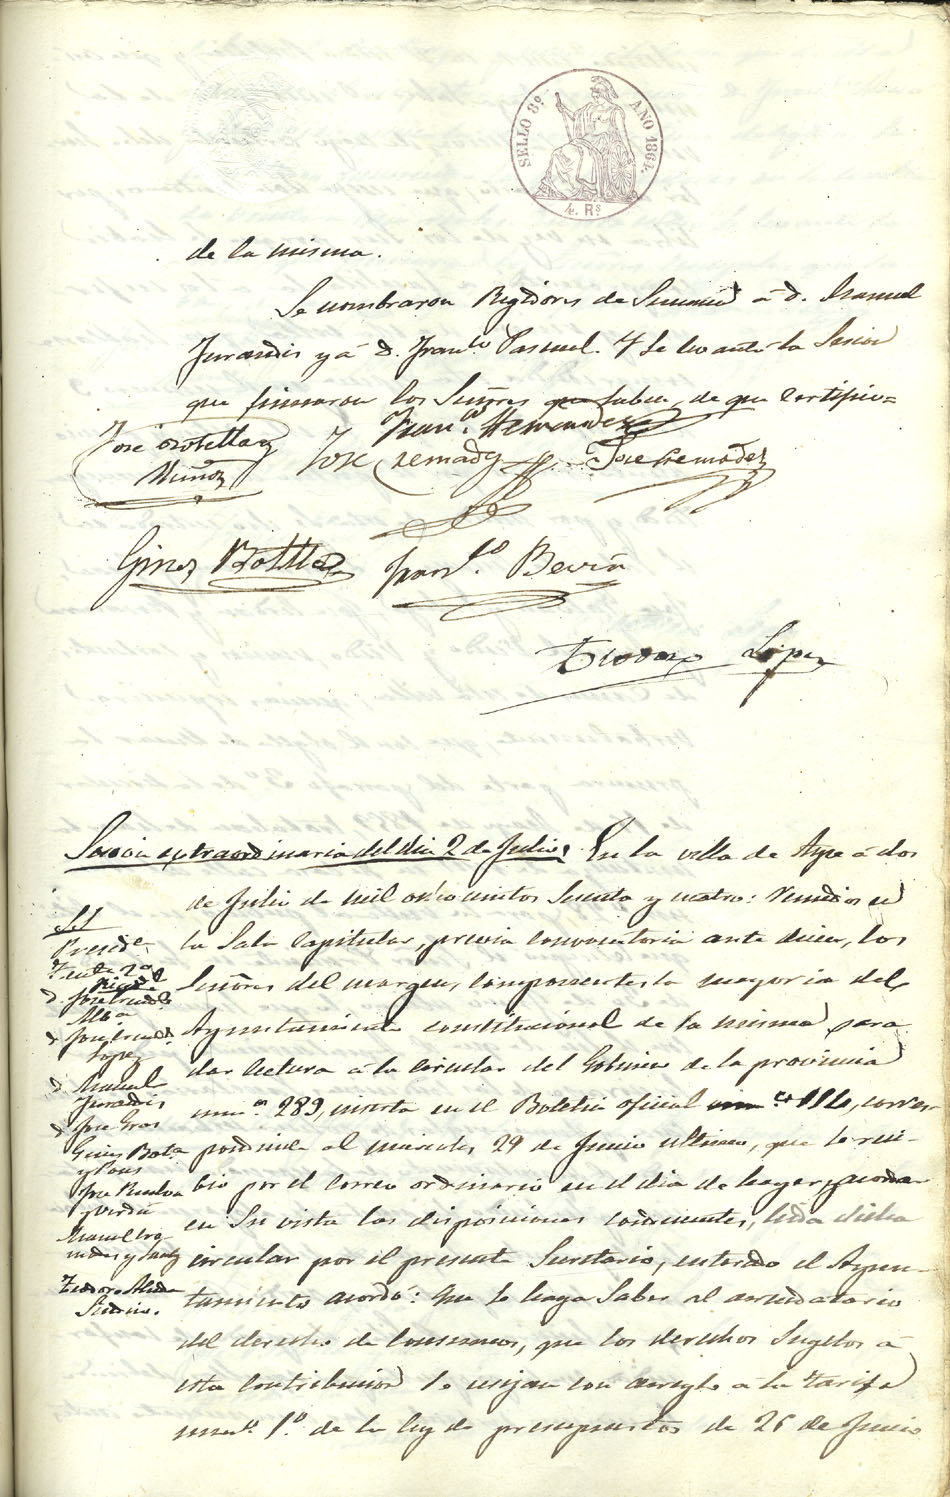 SELLO 8º. AÑO 1864.
4. Rs
de la misma.
Se nombraron Regidores de Semana á D. Manuel
Jurandis y á D. Franco. Pascual. Y se levantó la Sesion
que firmaron los Señres que saben, de que certifico=
José Botella y
Muñoz
Franco. Hernandez
José Cremadez
José Cremades
Gines Botella
Franco. Beviá
Teodoro Lopez
Sesion extraordinaria del dia 2 de Julio. En la villa de Aspe á dos
de Julio de mil ochocientos sesenta y cuatro: reunidos en
la Sala Capitular, previa convocatoria ante diem, los
Señores del margen, componentes la mayoria del
Ayuntamiento constitucional de la misma para
dar lectura á la circular del Gobierno de la provincia
num.º 289, inserta en el Boletin oficial 114, corres-
pondiente al miercoles 29 de Junio ultimo, que se reci-
bió por el correo ordinario en el dia de hayer y acordar
en su vista las disposiciones conducentes, leida dicha
circular por el presente Secretario, enterado el Ayun-
tamiento acordó: Que se haga saber al arrendatario
del derecho de consumos, que los derechos sugetos á
esta contribucion se exijan con arreglo á la tarifa
num.º 1.º de la ley de presupuestos de 25 de Junio
SS.
Preside.
Tente. 2º
D. José
Alba
D. José
Lopez
D. Manuel
Jurandis
D. José Gras
Gines Bota.
y Pons
José
y Verdú
Manuel
Teodoro
Sindico.